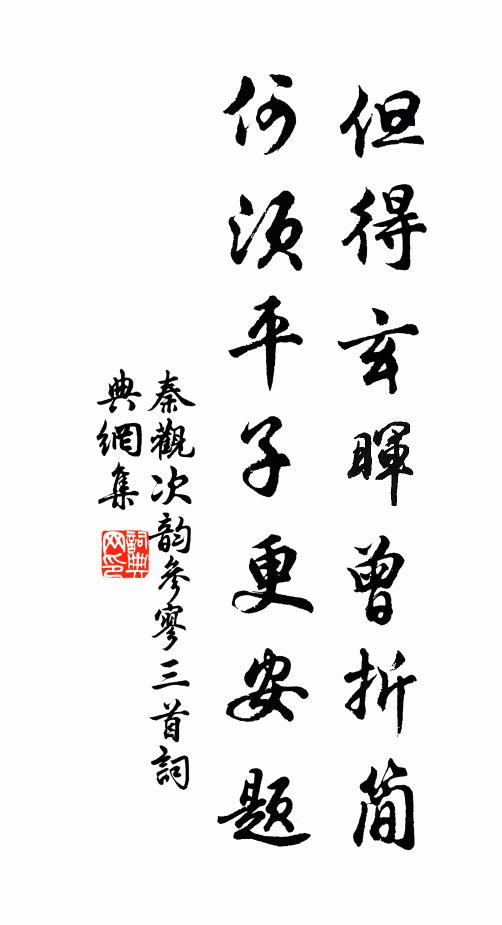 但得玄暉曾折简
何須平子更安题
秦觀次韵參寥三首詞
典網集
詞典
网印